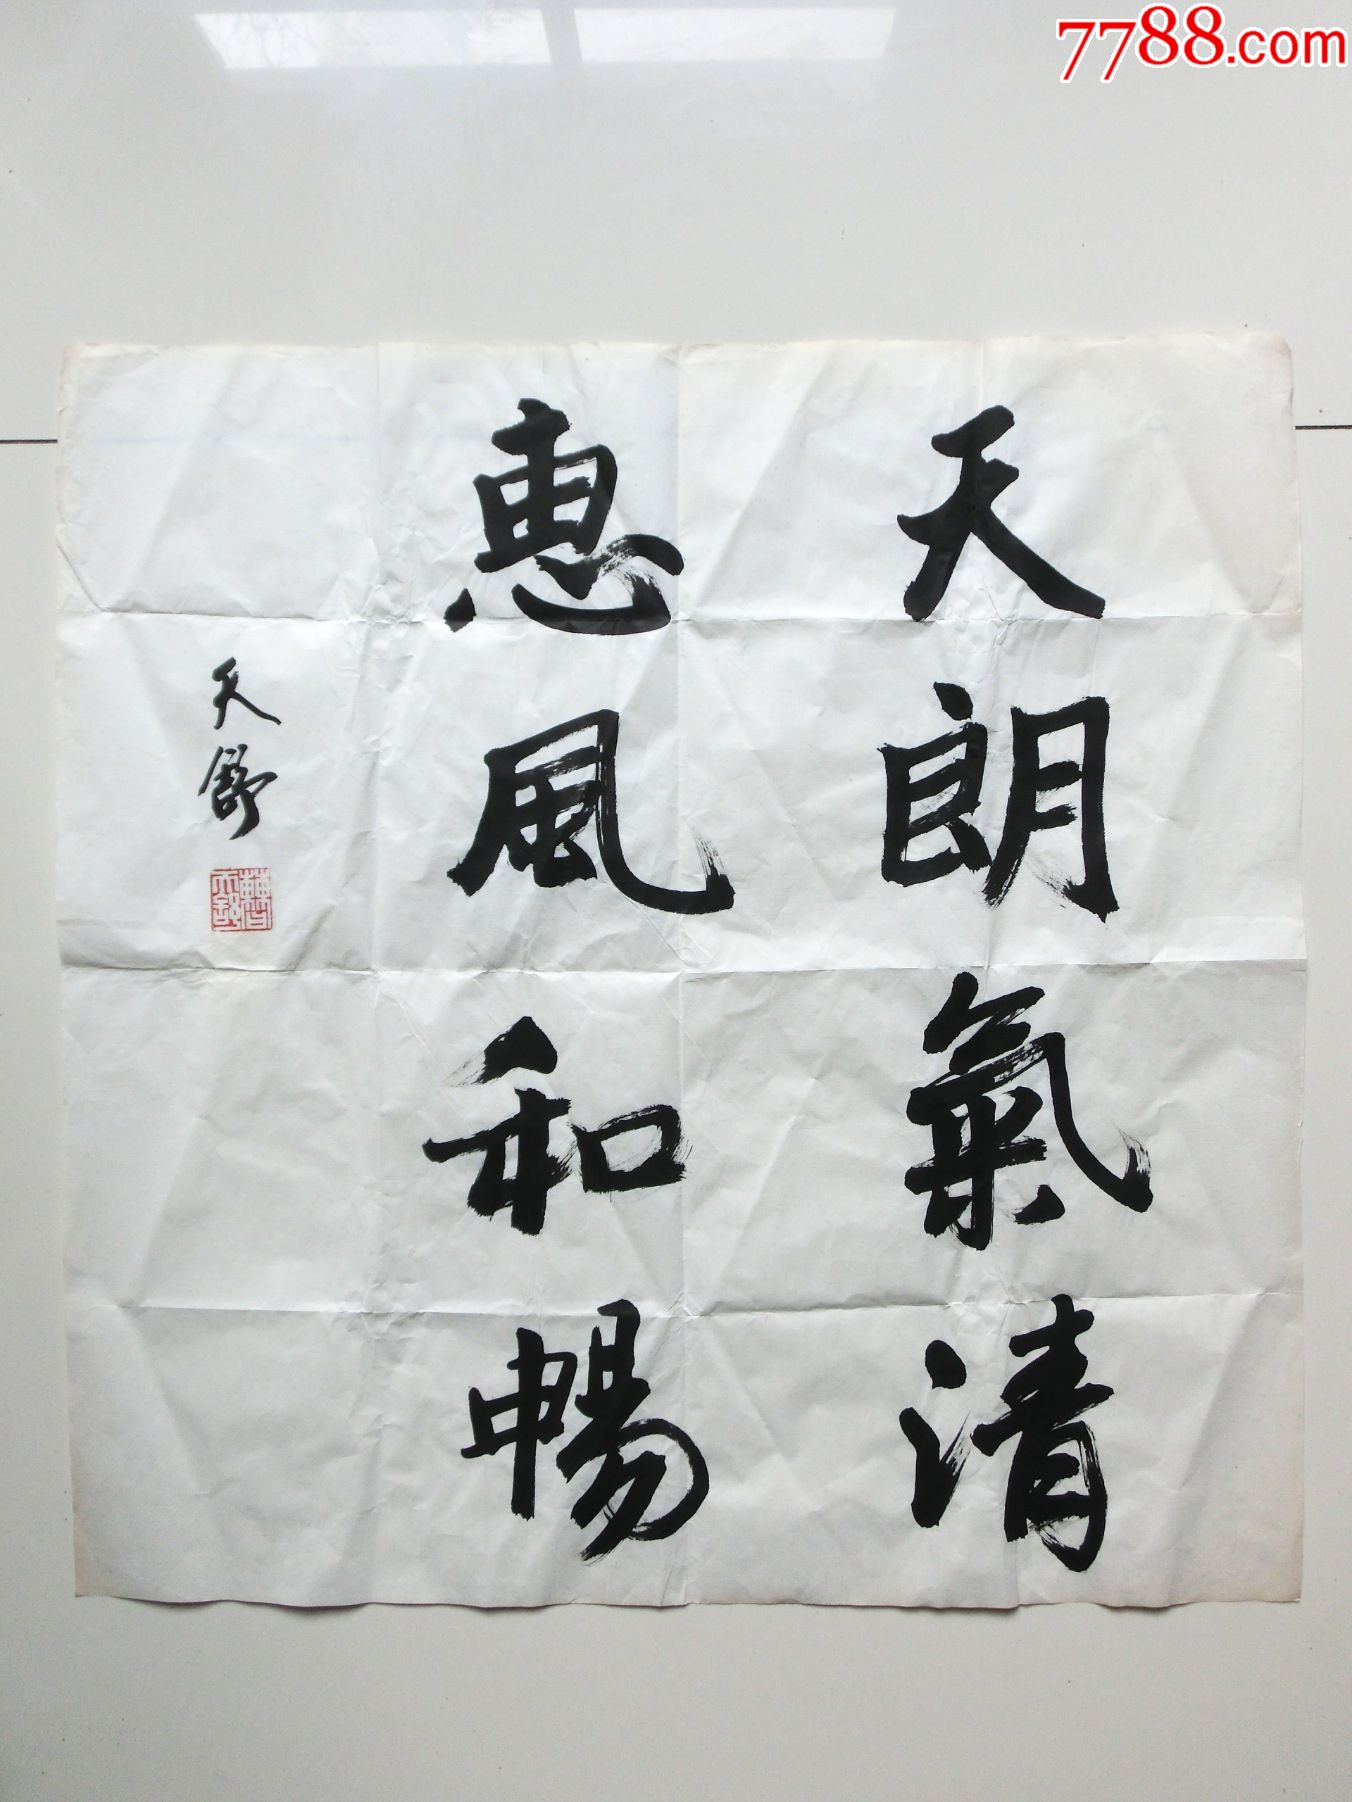 7788.com
天朗氣清
惠風和暢
天舒